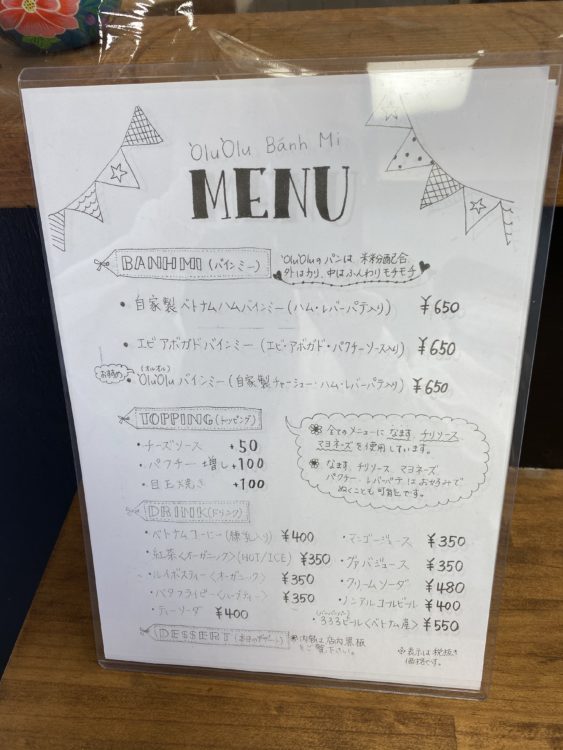 'Olu'Olu Bánh Mi
MENU
BANHMI (バインミー)
'Olu'Oluのパンは 米粉配合
外はカリ、中はふんわりモチモチ
• 自家製ベトナムハムバインミー(ハム・レバーパテ入り) ¥650
• エビアボガドバインミー(エビ・アボガド・パクチーソース入り) ¥650
お薦め
(オルオル)
• 'Olu'Olu バインミー(自家製チャーシュー・ハム・レバーパテ入り) ¥650
TOPPING(トッピング)
• チーズソース +50
• パクチー増し +100
• 目玉焼き +100
全てのメニューに なます、チリソース、
マヨネーズを使用しています。
なます、チリソース、マヨネーズ、
パクチー、レバーパテ はお好みで
ぬくことも可能です。
DRINK(ドリンク)
• ベトナムコーヒー(練乳入り) ¥400
• 紅茶<オーガニック>(HOT/ICE) ¥350
• ルイボスティー<オーガニック> ¥350
• バタフライピー<ハーブティー> ¥350
• ティーソーダ ¥400
• マンゴージュース ¥350
• グァバジュース ¥350
• クリームソーダ ¥480
• ノンアルコールビール ¥400
(バーバーバー)
• 333ビール<ベトナム産> ¥550
DESSERT(本日のデザート)
• 内容は店内黒板
をご覧下さい。
※表示は税抜き
価格です。